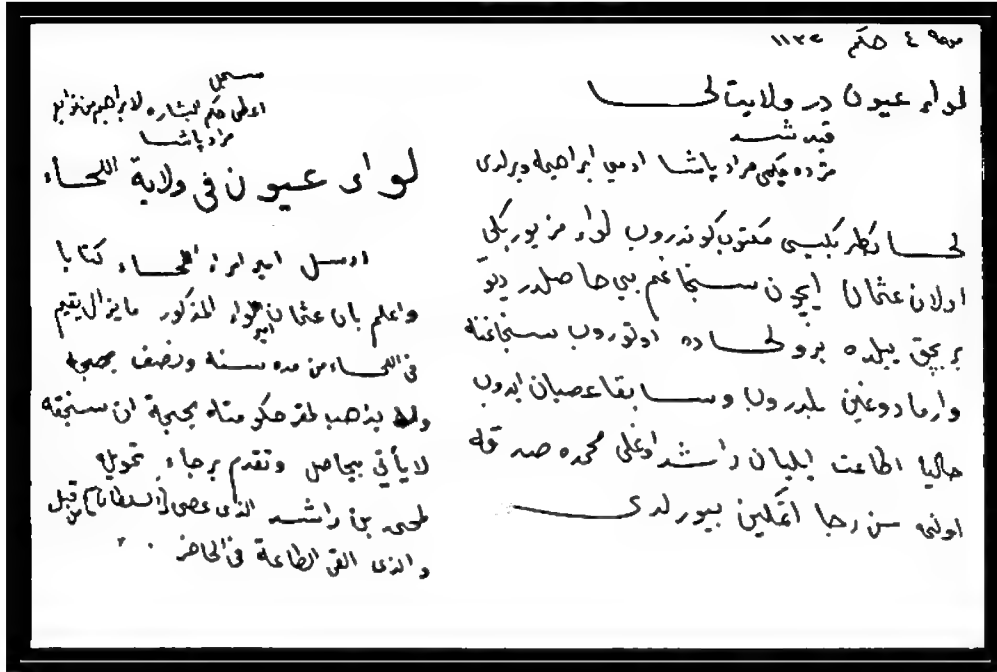 ٤ حكم ١١٣٤
لواء عيون در ولايت لحسا
قيد شد
مراد پاشا ادمي ابراهيمه ويرلدى
لحسا مكتوب كوندروب لواء مزبور بكى
اولان عثمان ايچون سنجاغم بى حاصلدر ديو
بر بچق ييلده برو لحساده اوتوروب سنجاغنه
وارمادوغين بلدروب وسابقا عصيان ايدوب
حاليا اطاعت ايليان راشد اوغلى محمده صدقه
اولنمسن رجا اتمكين بيورلدى
مسجل
اعطى حكم البشاره لابراهيم من توابع
مراد پاشا
لواء عيون في ولاية اللحساء
ارسل امير امراء اللحساء كتابا
واعلم بان عثمان امير اللواء المذكور مايزال يقيم
في اللحساء من مده سنة ونصف بحجة
يذهب لمقر حكومتاه بحجة ان سنجقه
لايأتي بحاصل وتقدم برجاء تحويله
لمحمد بن راشد الذى عصى [السلطان] من قبل
والذى القى الطاعة في الحاضر . .